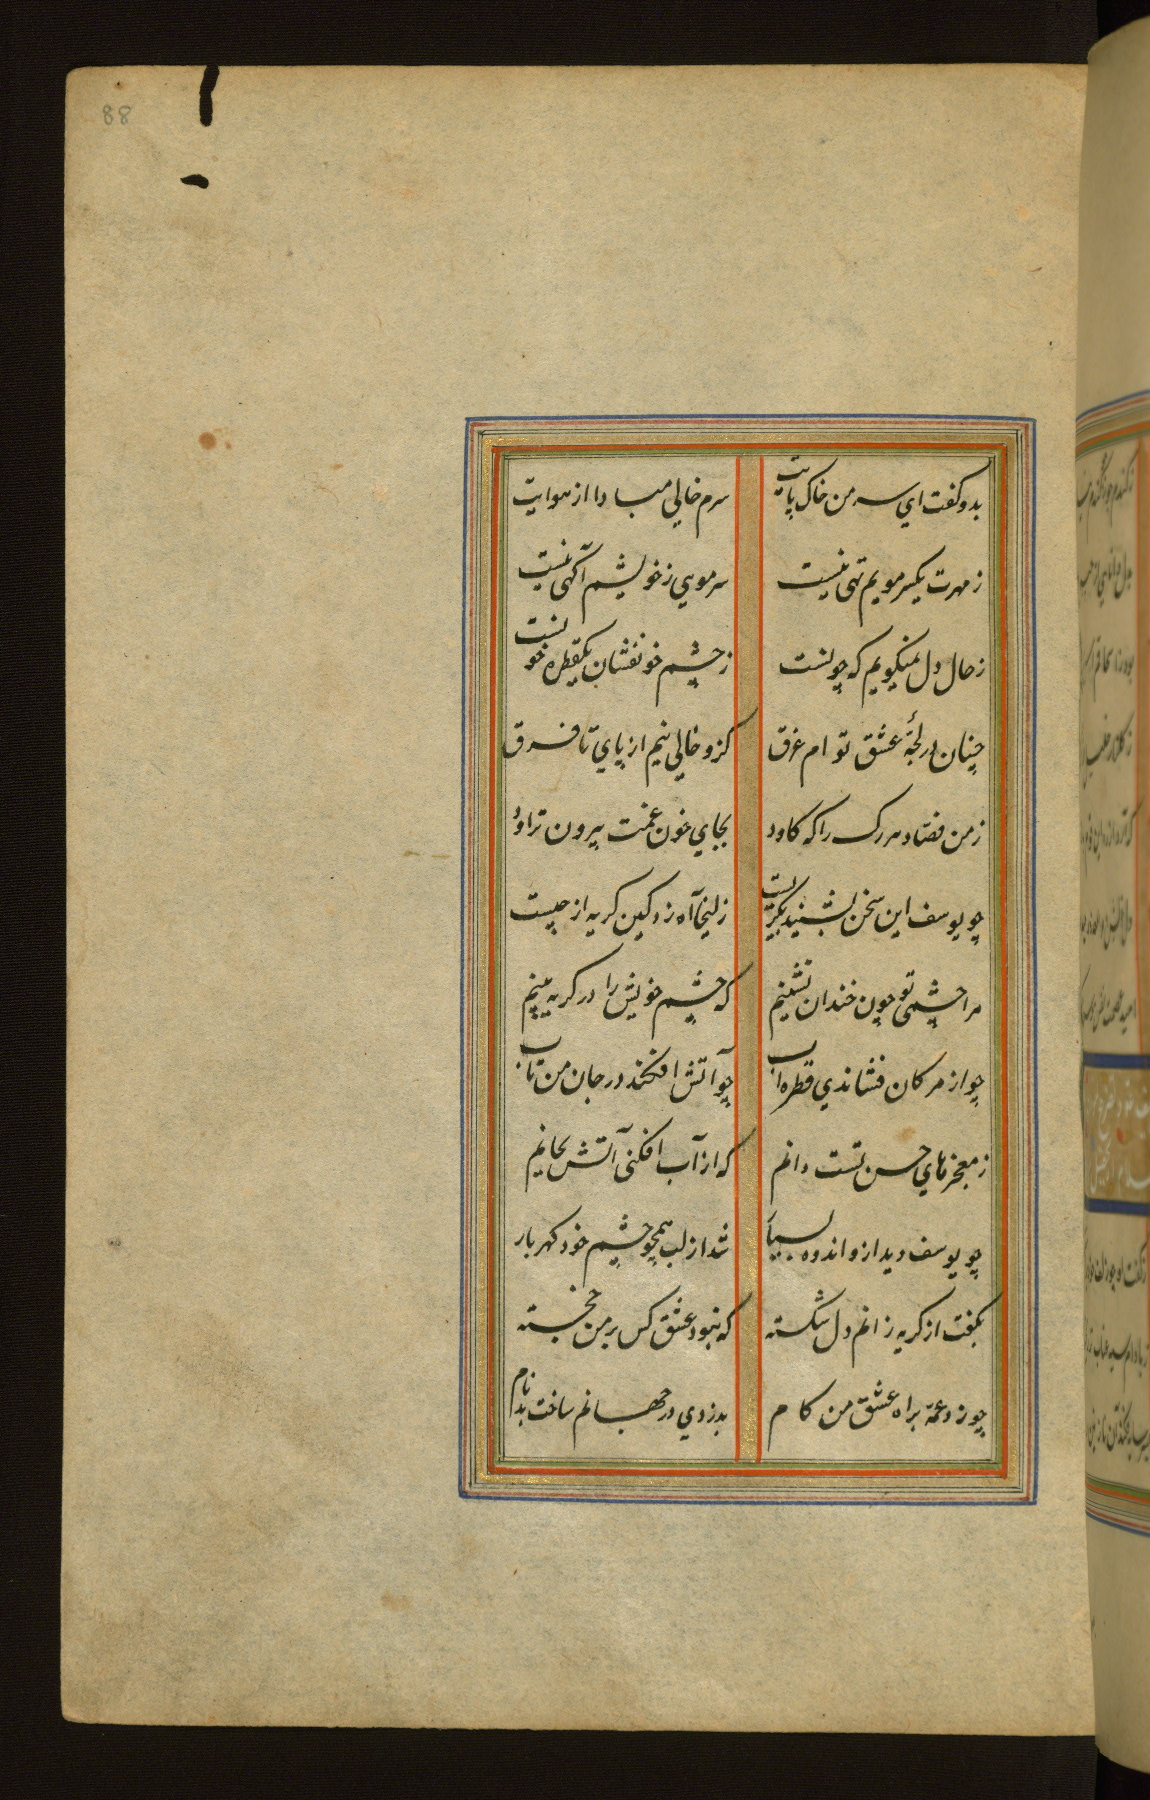 88
بدو گفت ای سر من خاک پایت سرم خالی مبادا از هوایت
ز مهرت یکسر مویم تهی نیست سر مویی ز خویشم آگهی نیست
ز حال دل نمیگویم که چونست ز چشم خونفشان یکقطره خونست
چنان در لجهٔ عشق تو ام غرق کزو خالی نیم از پای تا فرق
ز من فصاد هر رگ را که کاود بجای خون غمت بیرون تراود
چو یوسف این سخن بشنید بگریست زلیخا آه زد کین گریه از چیست
مرا چشمی تو چون خندان نشینم که چشم خویش را در گریه بینم
چو از مژگان فشاندی قطره آب چو آتش افکند در جان من تاب
ز معجزهای حسن تست دانم که از آب افکنی آتش بجانم
چو یوسف دید ازو اندوه بسیار شد از لب همچو چشم خود گهربار
بگفت از گریه زانم دل شکسته که نبود عشق کس بر من خجسته
چو زد عمه براه عشق من کام بدزدی در جهانم ساخت بدنام